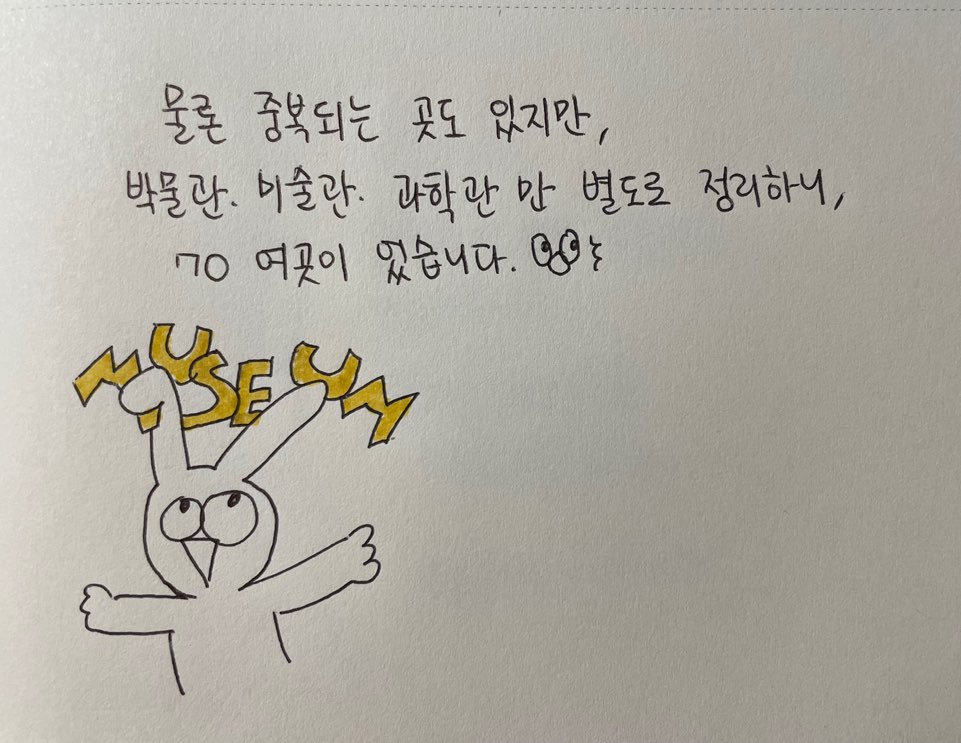 물론 중복되는 곳도 있지만,
박물관. 미술관. 과학관 만 별도로 정리하니,
70 여곳이 있습니다.
MUSEUM